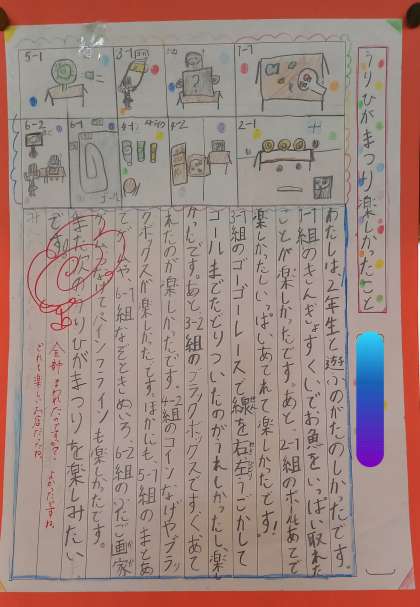 うりひがまつり楽しかったこと
1-1
1-2
3-1
5-1
2-1
4-2
4-1
6-1
6-2
ゴール
わたしは、2年生と遊ぶのがたのしかったです。
1-1組のきんぎょすくいでお魚をいっぱい取れた
ことが楽しかったです。あと、2-1組のボールあてで
楽しかったしいっぱいあてれて楽しかったです!
3-1組のゴーゴーレースで線を右左うごかして
ゴールまでたどりついたのがうれしかったし、楽し
かんです。あと、3-2組のブラックボックスですぐあて
れたのが楽しかたです。4-2組のコインなげやブラッ
クボックスが楽しかたです。ほかにも、5-1組のまとあ
てゲームや、6-1組なぞときめいろ、6-2組の
なげてパインフラインも楽しかったです。
また次のうりひがまつりを楽しみたい
です。
全部まわれたのですか?よかったですね。
どれも楽しいお店だったね。